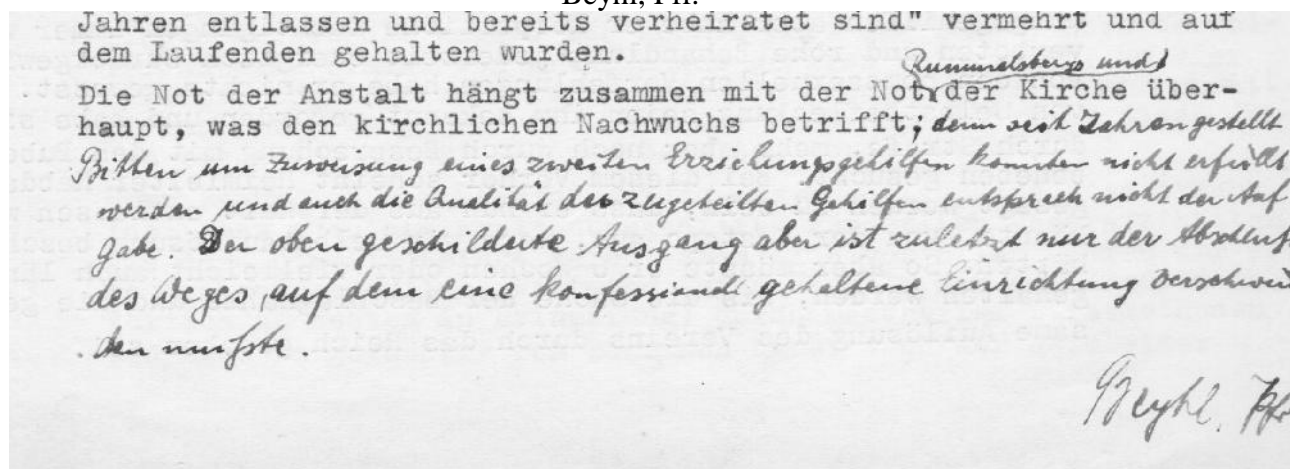 Beyhl, Pfr.
Jahren entlassen und bereits verheiratet sind" vermehrt und auf
dem Laufenden gehalten wurden.
Rummelsbergs und
Die Not der Anstalt hängt zusammen mit der Not der Kirche über-
haupt, was den kirchlichen Nachwuchs betrifft; denn seit Jahren gestellt
Bitten um Zuweisung eines zweiten Erziehungsgehilfen konnten nicht erfüllt
werden und auch die Qualität der zugeteilten Gehilfen entsprach nicht der Auf
gabe. Der oben geschilderte Ausgang aber ist zuletzt nur der Abschluß
des Weges, auf dem eine konfessionell gehaltene Einrichtung verschwin
den mußte.
Beyhl, Pfr